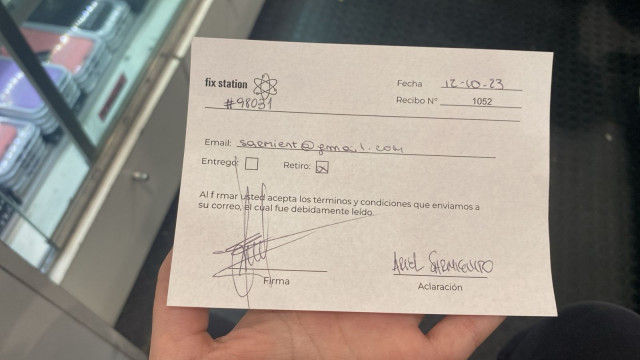 fix station
Fecha 12-10-23
#98031
Recibo N° 1052
Email: sarmient@gmail.com
Entrego: Retiro: X
Al f rmar usted acepta los términos y condiciones que enviamos a
su correo, el cual fue debidamente leído.
ARIEL SARMIENTO
Firma
Aclaración